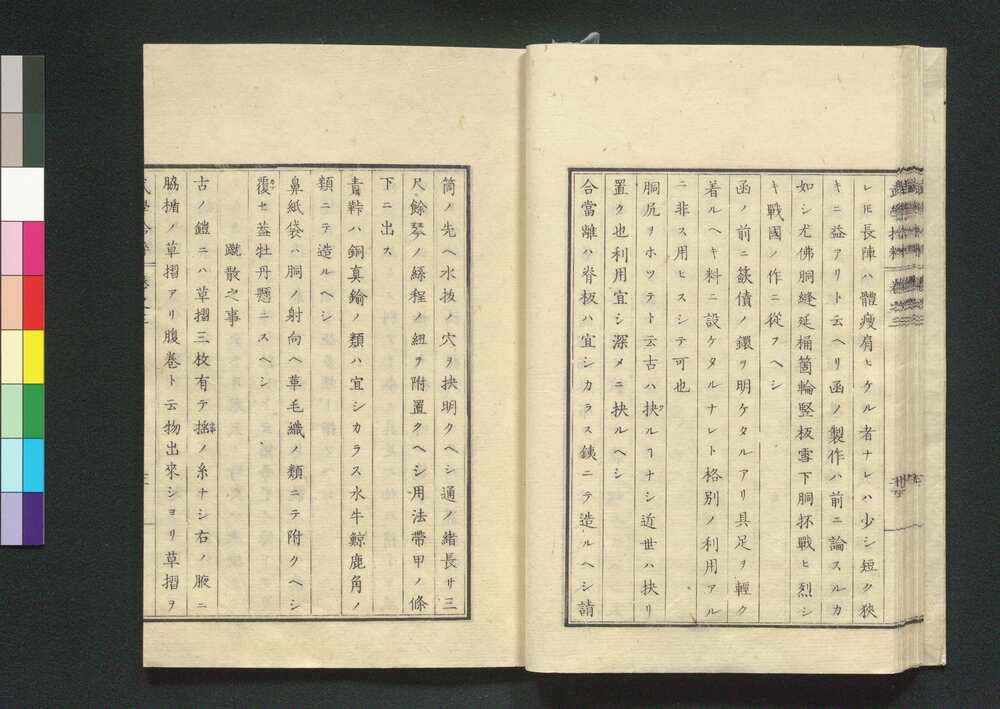 レ𪜈長陣ハ體瘦肩ヒケル者ナレハ少シ短ク狹
キニ益アリト云ヘリ函ノ製作ハ前ニ論スルカ
如シ尤佛胴縫延桶箇輪竪板雪下胴抔戰ヒ烈シ
キ戰國ノ作ニ從フヘシ
函ノ前ニ篏債ノ鐶ヲ明ケタルアリ具足ヲ輕ク
着ルヘキ料ニ設ケタルナレト格別ノ利用アル
ニ非ス用ヒスシテ可也
胴尻ヲホツテト云古ハ抉ルヿナシ近世ハ抉リ
置ク也利用宜シ深メニ抉ルヘシ
合當離ハ脊板ハ宜シカラス銕ニテ造ルヘシ請
筒ノ先ヘ水抜ノ穴ヲ抉明クヘシ通ノ緒長サ三
尺餘琴ノ絲程ノ紐ヲ附置クヘシ用法帶甲ノ條
下ニ出ス
責鞐ハ銅真鍮ノ類ハ宜シカラス水牛鯨鹿角ノ
類ニテ造ルヘシ
鼻紙袋ハ胴ノ射向ヘ革毛織ノ類ニテ附クヘシ
覆セ蓋牡丹懸ニスヘシ
蹴散之事
古ノ鎧ニハ草摺三枚有テ搖ノ糸ナシ右ノ腋ニ
脇楯ノ草摺アリ腹巻ト云物出來シヨリ草摺ヲ